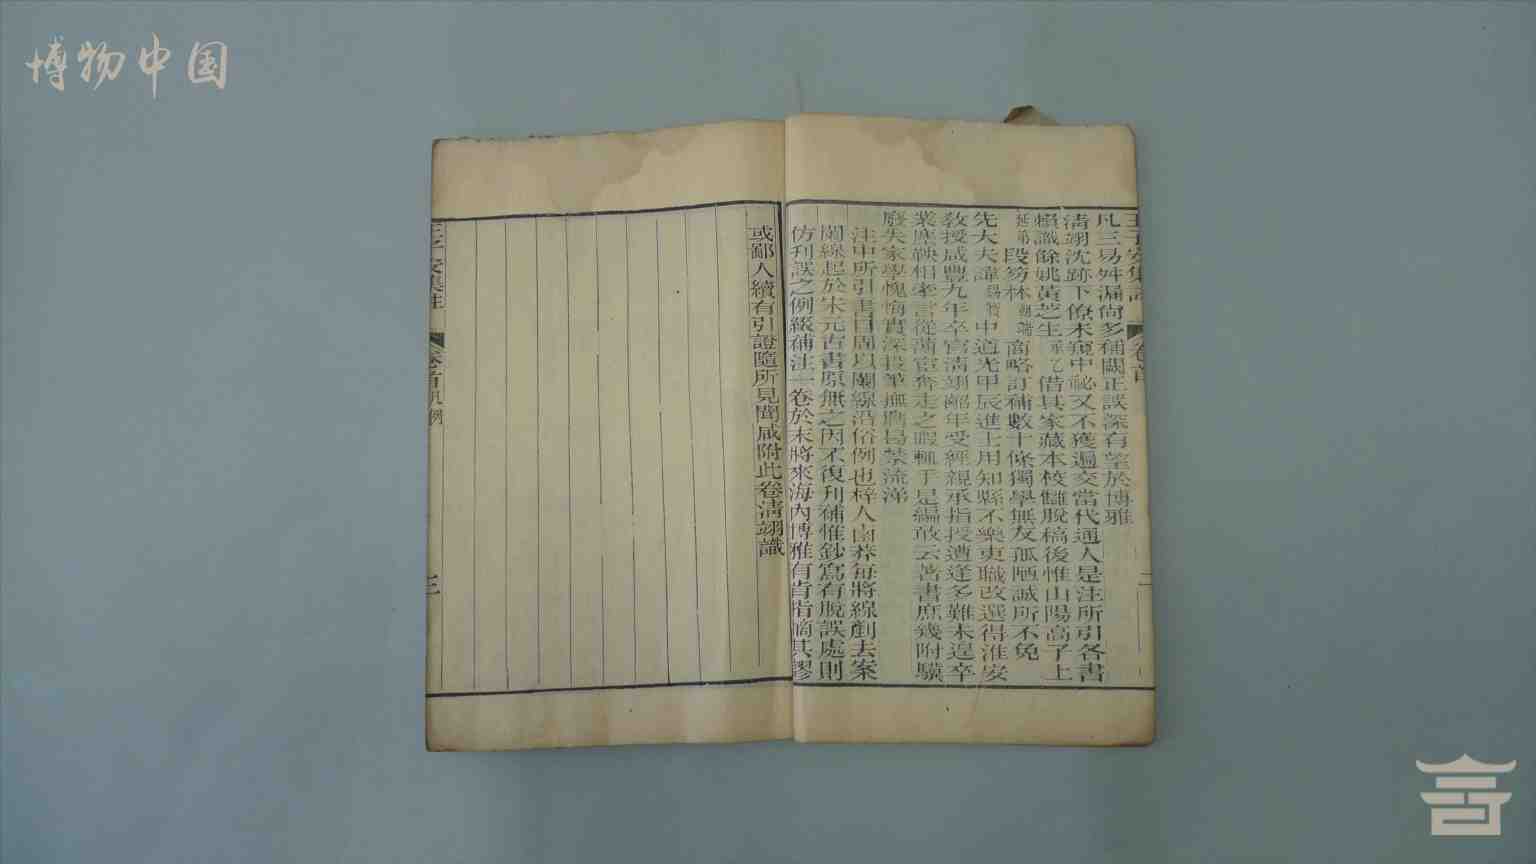 博物中国
王子安集註
卷首
凡三易舛漏尙多補闕正誤深有望於博雅
淸翊沈跡下僚未窺中祕又不獲遍交當代通人是注所引各書
賴識餘姚黃芝生 借其家藏本校讎脫稿後惟山陽高子上
延第 段笏林朝端 商略訂補數十條獨學無友孤陋誠所不免
先大夫諱 中道光甲辰進士用知縣不樂吏職改選得淮安
敎授咸豐九年卒官淸翊齠年受經親承指授遭逢多難未遑卒
業塵鞅相牽言從薄宦奔走之暇輒手是編敢云著書庶幾附驥
廢失家學愧悔實深投筆無聊曷禁流涕
注中所引書目周以闌線沿俗例也梓人鹵莽每將線剷去案
闌線起於宋元古書原無之因不復刊補惟鈔寫有脫誤處則
仿刊誤之例綴補注一卷於末將來海內博雅有肯指摘其謬
或鄙人續有引證隨所見聞咸附此卷淸翊識
王子安集註
卷首凡例
三